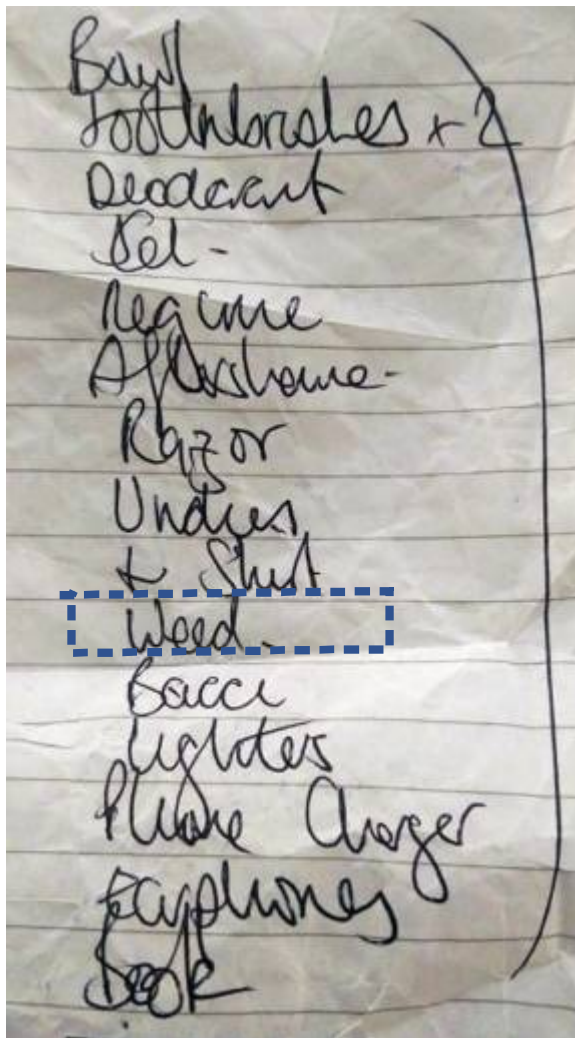 Bag
toothbrushes + 2
Deoderant
Gel -
Regaine
Aftershave -
Razor
Undies
t Shirt
Weed -
Bacci
lighters
Phone Charger
Earphones
Book